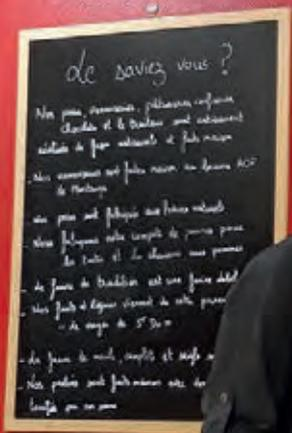 Le saviez vous ?
Nos pains, viennoiseries, pâtisseries, confiserie,
chocolats et le traiteur sont entièrement
réalisés de façon artisanale et faits maison
- Nos viennoiseries sont faites maison au beurre AOP
de Montaigu
- Nos pains sont fabriqués aux levains naturels
- Nous fabriquons notre compote de pommes pour
les tartes et les chaussons aux pommes
- La farine de tradition est une farine label
- Nos fruits et légumes viennent de
- La farine de meule, complète et seigle
- Nos pralinés sont faits maison avec